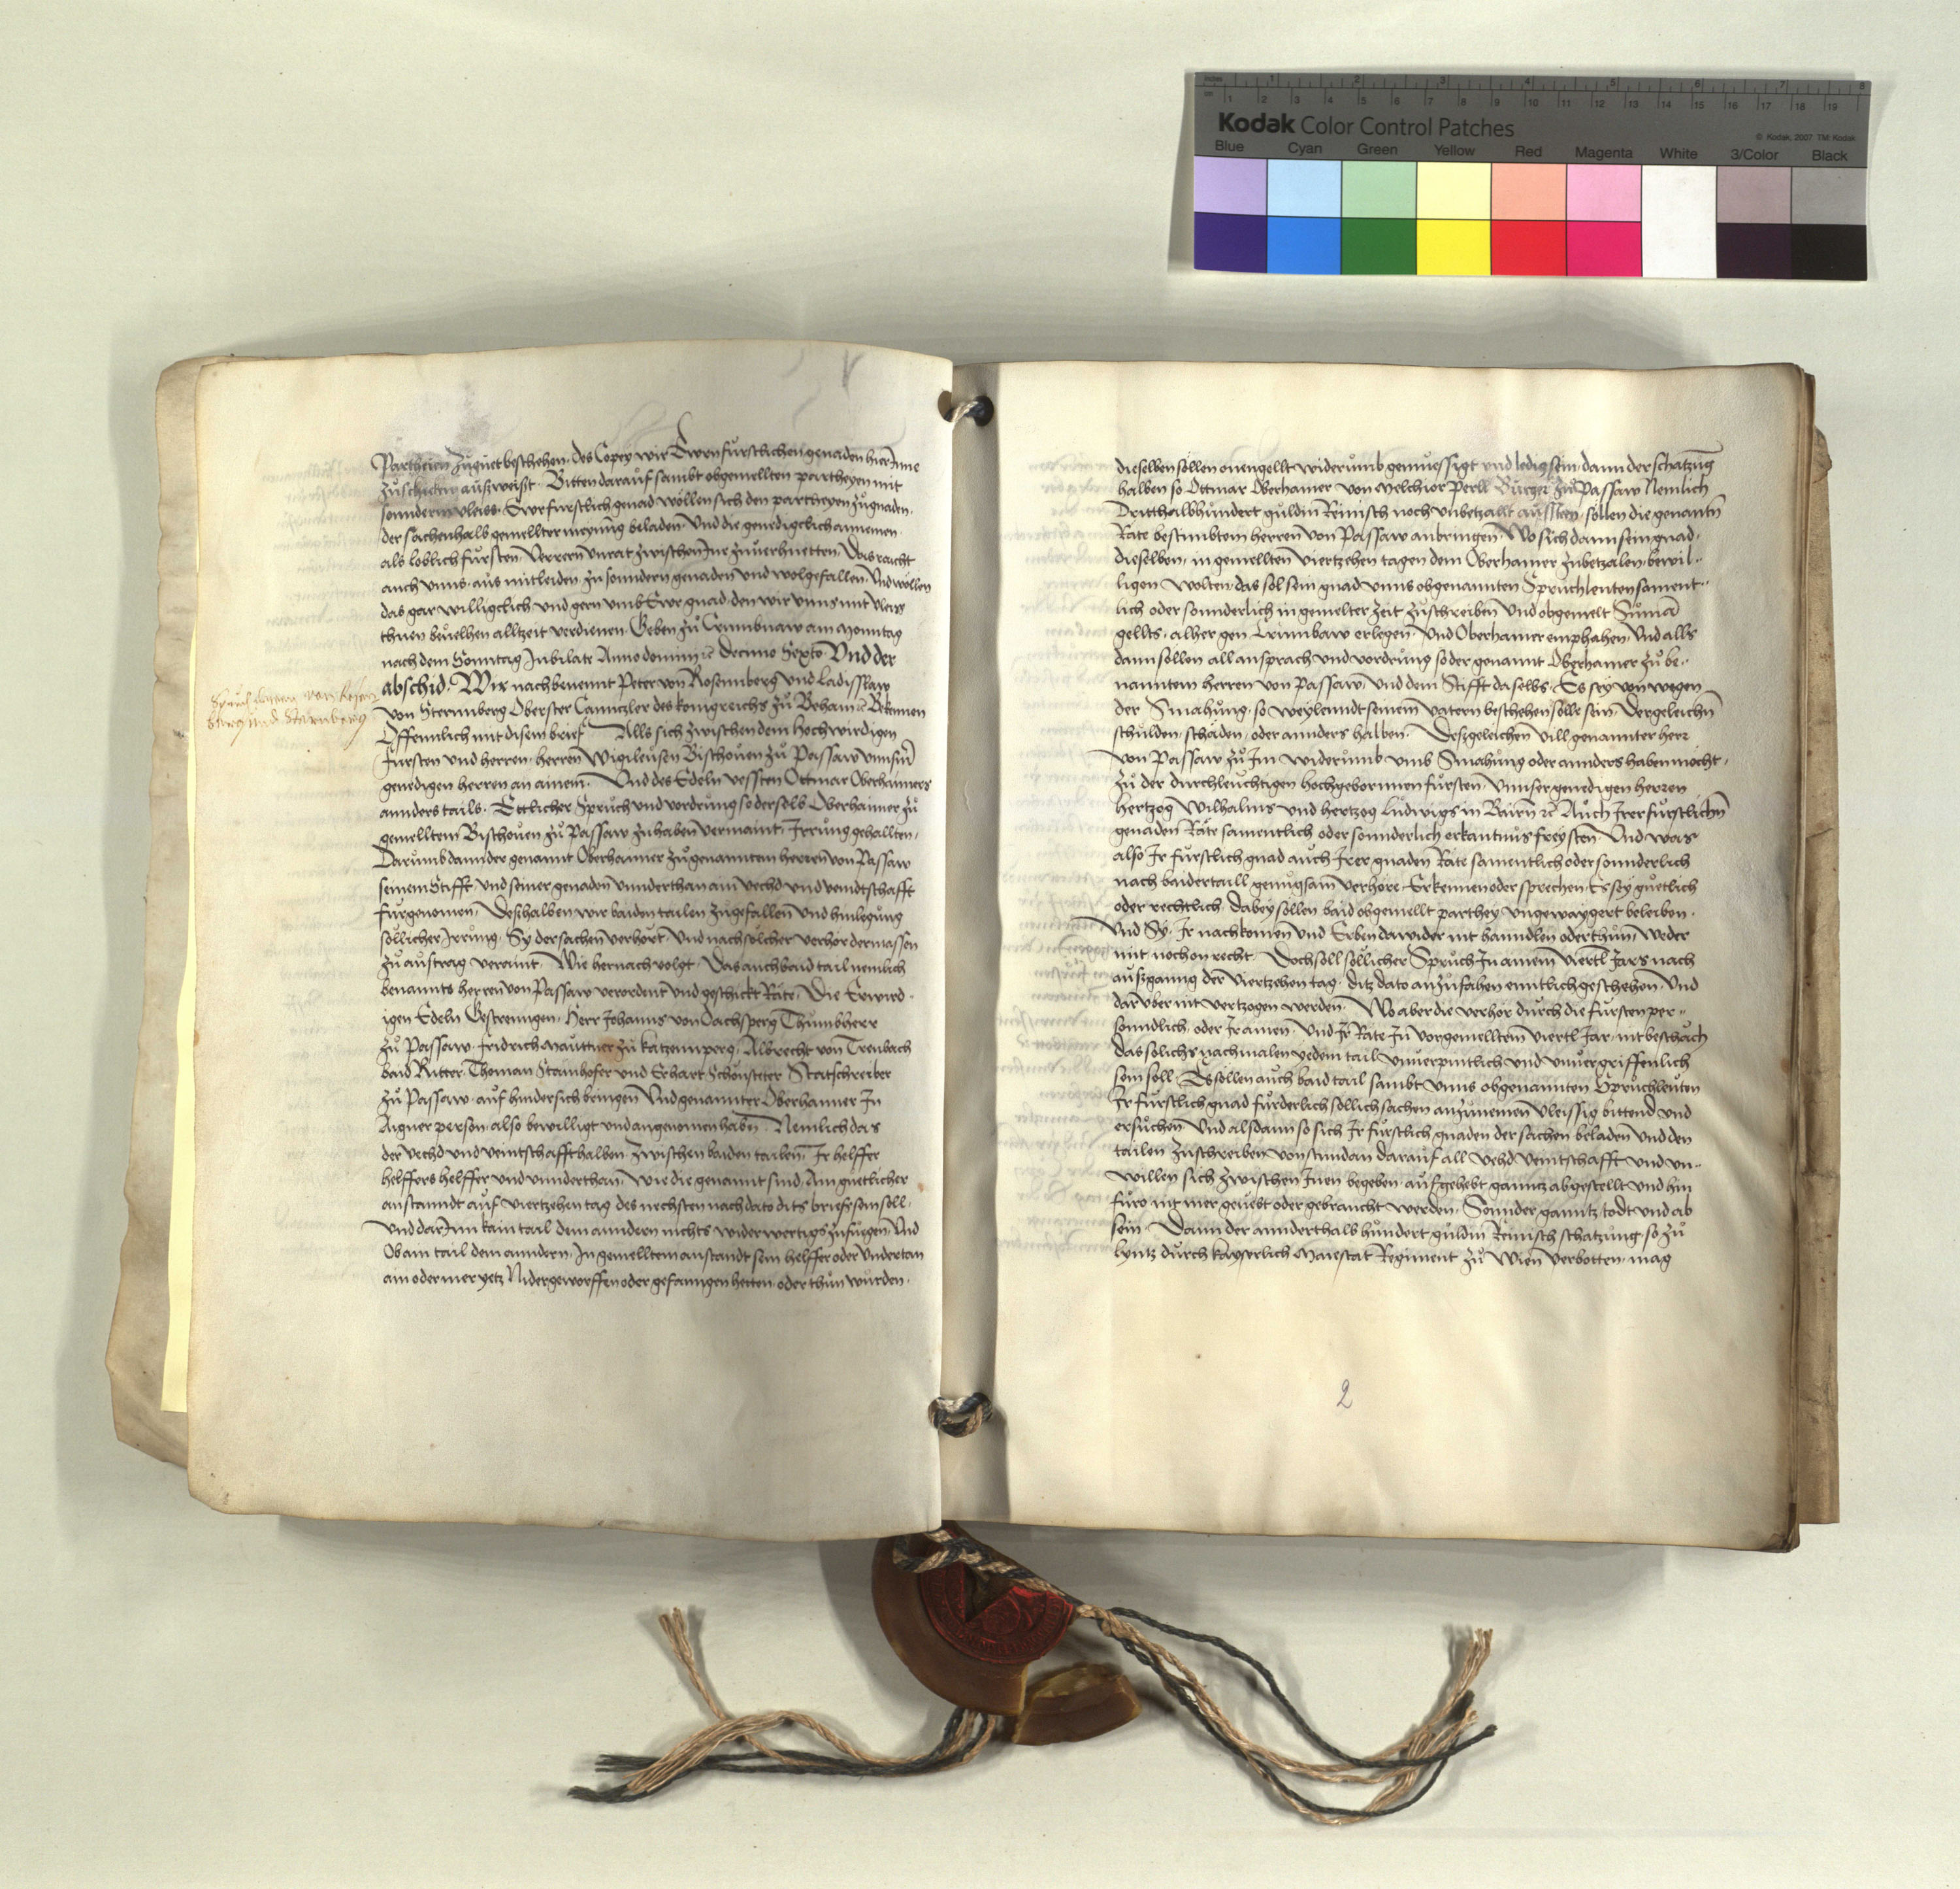 Kodak Color Control Patches
© Kodak, 2007 TM: Kodak
Inches 1 2 3 4 5 6 7 8
cm 1 2 3 4 5 6 7 8 9 10 11 12 13 14 15 16 17 18 19
Blue Cyan Green Yellow Red Magenta White 3/Color Black
Partheien zůguet beschehen. Des Copey wir Ewrn fůrstlichen genaden hierInne
zůschicken außweißt. Bitten darauf sambt obgemellten partheyen mit
sonnderm vleiss. Ewr furstlich genad wöllen sich den partheyen zůgnaden.
der sachenhalb gemellter meynůng beladen Vnd die genedigclich annemen
als loblich fůrsten, Verrern vnrat zwischen Inr zůuerhuetten. Das raicht
auch vnns aus mitleiden zu sonndern genaden vnd wolgefallen. Vnd wöllen
das gar willigclich vnd gern vmb Ewr gnad den wir vnns mit vleis
thuen beuelhen alltzeit verdienen. Geben zů Crumbnaw am Monntag
nach dem Sonntag Jubilate Anno domini ec Decimo Sexto Vnd der
abschid. Wir nachbenennt Peter von Rosennberg vnd Ladisslaw
von Sternnberg Oberster Canntzler des konigreichs zů Beham ec Bekennen
Offennlich mit disem brief Alls sich zwischen dem Hochwirdigen
Fürsten vnd herren, herren Wigileusen Bischouen zů Passaw vnnserm
genedigen herren an ainem. Vnd des Edeln vessten Ottmar Oberhaimers
annders tails. Ettlicher Sprůch vnd vordrůng so derselb Oberhaimer zů
gemelltem Bischouen zů Passaw zuhaben vermaint, Irrůng gehallten,
Darůmb dann der genannt Oberhaimer zů genanntem herren von Passaw
seinem Stifft vnd seiner genaden vnnderthan ain vechd vnd veindtschafft
fůrgenomen, Deßhalben wir baiden tailen zugefallen vnd hinlegůng
sollicher Irrůng. Sy der sachen verhört. Vnd nach solcher verhör dermassen
zů austrag veraint. Wie hernach volgt. Das auch baid tail nemlich
benannts herren von Passaw verordent vnd geschickt Räte, Die Erwird.
igen Edeln Gestrenngen. Herr Johanns von Dachsperg Thumbherr
zů Passaw, Fridrich Mauttner zu Katzennperg, Albrecht von Trenbach
baid Ritter Thoman Stainhofer vnd Erhart Schönsteter Statschreiber
zů Passaw. auf hindersichbringen Vnd genannter Oberhaimer In
Aigner person also bewilligt vnd angenomen habn. Nemlich das
der vechd vnd veintschafft halben zwischen baiden tailen, Ir helffer
helffers helffer vnd vnnderthan, wie die genannt sind, Ain guetlicher
anstanndt auf viertzehen tag des nechsten nach dato dits briefs sein soll.
Vnd darInn kain tail dem anndern nichts widerwertigs zufuegen, Vnd
Ob ain tail dem anndern, In gemelltem anstandt sein helffer oder vndertan
ain oder mer yetz Nidergeworffen oder gefanngen hetten, oder thun wurden.
dieselben sollen onengellt widerůmb gemuessigt vnd ledig sein, dann der schatzung
halben so Ottmar Oberhamer von Melchior Perll Burger zů Passaw Nemlich
Dritthalbhůndert guldin Reinisch noch vnbetzallt aussten, sollen die genantn
Räte bestimbtem herren von Passaw anbringen, Wo sich dann sein gnad,
dieselben, in gemellten viertzehen tagen dem Oberhamer zubetzalen bewil..
ligen wolten, das sol sein gnad vnns obgenannten Spruchleuten sament..
lich oder sonnderlich in gemelter zeit zůschreiben Vnd obgemelt Suma
gellts, alher gen Crumbaw erlegen Vnd Oberhamer emphahen, Vnd alls
dann sollen all ansprach vnd vordrůng so der genannt Oberhamer zů be..
nanntem herren von Passaw, vnd dem Stifft daselbs, Es sey von wegen
der Smahůng, so weylenndt seinem vatern beschehen solle sein, Dergeleichn
schůlden, schäden, oder annders halben. Desgeleichen vill genannter herr
von Passaw zů Im widerůmb vmb Smahůng oder annders haben möcht,
zů der durchleuchtigen hochgebornnen fůrsten Vnnser genedigen herren
hertzog Wilhalms vnd hertzog Ludwigs in Bairn ec Aůch Irer fürstlichn
genaden Räte samentlich oder sonnderlich erkantnůs freysten. Vnd was
also Ir furstlich gnad auch Irer gnaden Räte samentlich oder sonnderlich
nach baidertaill genugsam verhöre Erkennen oder sprechen, Es sey guetlich
oder rechtlich, dabey sollen baid obgemellt parthey vngewaygert beleiben.
Vnd Sy, Ir nachkomen vnd Erben dawider nit hanndlen oder thun, weder
mit noch on recht. Doch soll sollicher Sprůch In ainem viertl Jars nach
außganng der viertzehen tag, ditz dato anzůfahen enntlich geschehen, Vnd
darvber nit vertzogen werden. Wo aber die verhör durch die fürsten per..
sonndlich, oder Ir ainen, Vnd Ir Räte In vorgemelltem viertl Jar, nit beschäch
das solichs nachmalen yedem tail vnuerpintlich vnd vnuergriffenlich
sein soll. Es sollen auch baid tail sambt vnns obgenannten Sprüchleuten
Ir fürstlich gnad fürderlich sollich sachen anzunemen vleissig bittend vnd
ersůchen Vnd alsdann so sich Ir fürstlich gnaden der sachen beladen vnd den
tailen zuschreiben von stundan darauf all vehd veintschafft vnd vn..
willen sich zwischen Inen begeben, aufgehebt ganntz abgestellt vnd hin
füro nit mer geuebt oder gebraucht werden. Sonnder ganntz todt vnd ab
sein. Dann der annderthalb hundert guldin Reinisch schatzung, so zů
Lynntz durch kayserlich Maiestat Regiment zů Wien verbotten, mag
2